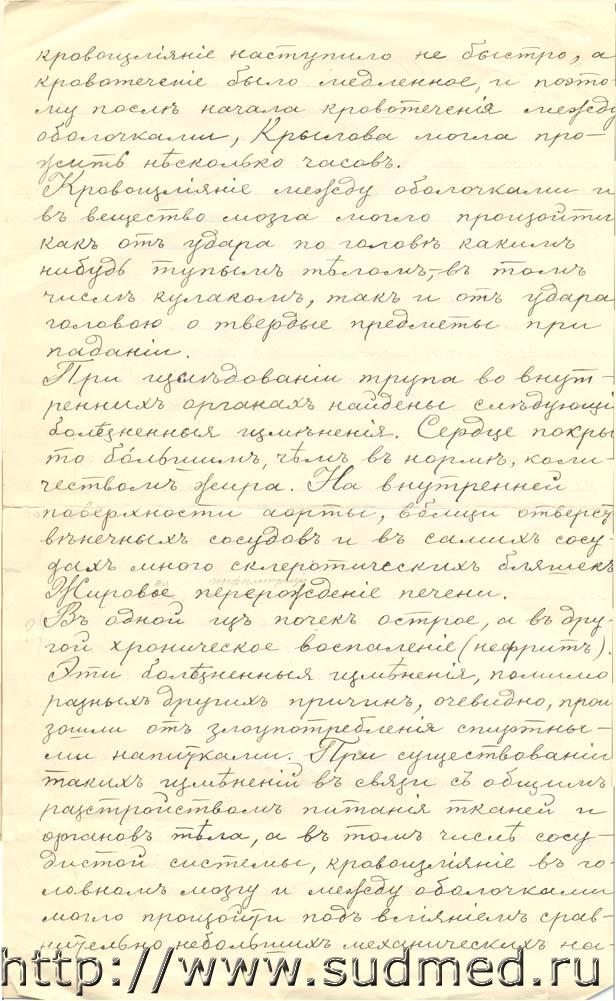 кровоизлiянiе наступило не быстро, а
кровотеченiе было медленное, и поэто-
му послѣ начала кровотеченiя между
оболочками, Крылова могла про-
жить нѣсколько часовъ.
Кровоизлiянiе между оболочками и
въ вещество мозга могло произойти
какъ отъ удара по головѣ какимъ
нибудь тупымъ тѣломъ,-въ томъ
числѣ кулакомъ, такъ и отъ удара
головою о твердые предметы при
паданiи.
При изслѣдованiи трупа во внут-
реннихъ органахъ найдены слѣдующi
болѣзненныя измѣненiя. Сердце покры
то бо́льшимъ, чѣмъ въ нормѣ, коли-
чествомъ жира. На внутренней
поверхности аорты, вблизи отверст
вѣнечныхъ сосудовъ и въ самихъ сосу-
дахъ много склеротическихъ бляшекъ
Жировое перерожденiе печени.
Въ одной изъ почекъ острое, а въ дру-
гой хроническое воспаленiе (нефритъ).
Эти болѣзненныя измѣненiя, помимо
разныхъ другихъ причинъ, очевидно, прои
зошли отъ злоупотребленiя спиртны-
ми напитками. При существованiи
такихъ измѣненiй въ связи съ общимъ
разстройствомъ питанiя тканей и
органовъ тѣла, а въ томъ числѣ сосу-
дистой системы, кровоизлiянiе въ го-
ловномъ мозгу и между оболочками
могло произойти подъ влiянiемъ срав-
нительно небольшихъ механическихъ на-
http://www.sudmed.ru